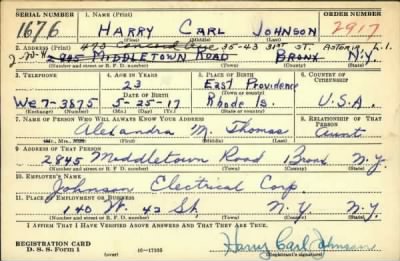 SERIAL NUMBER 1. NAME (Print) ORDER NUMBER
1676 HARRY CARL JOHNSON 2917
(First) (Middle) (Last)
2. ADDRESS (Print) 473 Concord Ave 35-43 31st ST. ASTORIA L.I.
2845 MIDDLETOWN ROAD BRONX N.Y.
(Number and street or R. F. D. number) (Town) (County) (State)
3. TELEPHONE 4. AGE IN YEARS 5. PLACE OF BIRTH 6. COUNTRY OF CITIZENSHIP
23 East Providence
DATE OF BIRTH (Town or county)
We 7-3875 5-25-17 Rhode Is. U.S.A.
(Exchange) (Number) (Mo.) (Day) (Yr.) (State or country)
7. NAME OF PERSON WHO WILL ALWAYS KNOW YOUR ADDRESS 8. RELATIONSHIP OF THAT PERSON
Alexandra M. Thomas Aunt
(Mr., Mrs., Miss) (First) (Middle) (Last)
9. ADDRESS OF THAT PERSON
2845 Middletown Road Bronx N.Y.
(Number and street or R. F. D. number) (Town) (County) (State)
10. EMPLOYER'S NAME
Johnson Electrical Corp
11. PLACE OF EMPLOYMENT OR BUSINESS
140 W. 42 St. N.Y. N.Y.
(Number and street or R. F. D. number) (Town) (County) (State)
I AFFIRM THAT I HAVE VERIFIED ABOVE ANSWERS AND THAT THEY ARE TRUE.
REGISTRATION CARD
D. S. S. Form 1 16-17105 Harry Carl Johnson
(Registrant's signature)